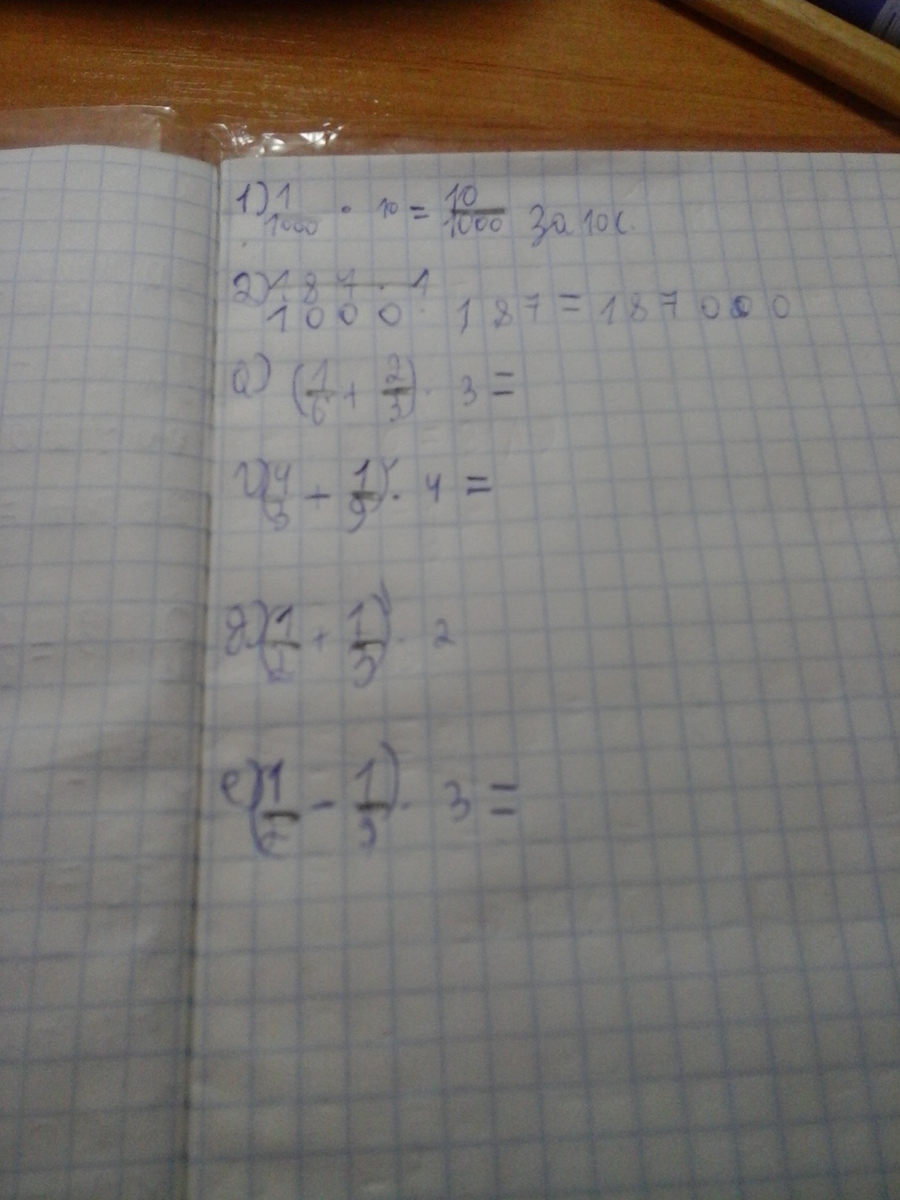 1) 1/1000 · 10 = 10/1000 За 10с.
2) 187 · 1
1000 · 187 = 187000
а) (1/6 + 2/3) · 3 =
г) (4/3 + 1/9) · 4 =
д) (1/2 + 1/3) · 2
е) (1/2 - 1/3) · 3 =